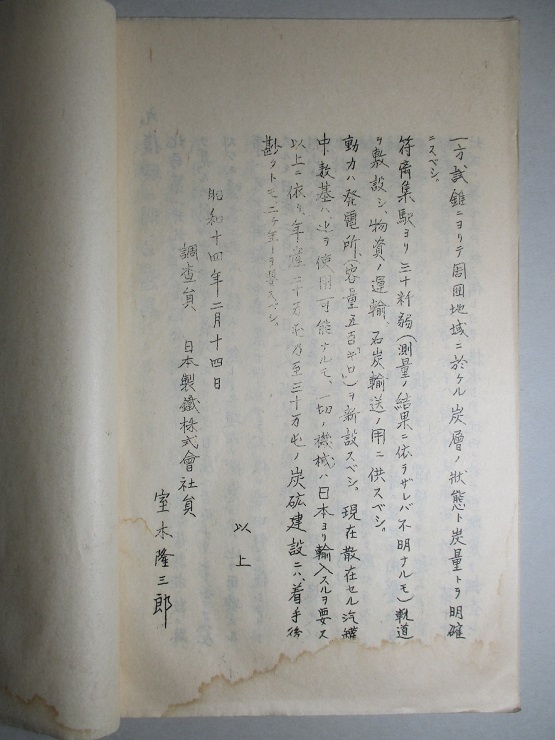 一方、試錐ニヨリテ周囲地域ニ於ケル炭層ノ状態ト炭量トヲ明確
ニスベシ。
符離集駅ヨリ三十粁弱(測量ノ結果ニ依ラザレバ不明ナルモ)軌道
ヲ敷設シ、物資ノ運輸、石炭輸送ノ用ニ供スベシ。
動力ハ発電所(容量五百キロ)ヲ新設スベシ。現在散在セル汽罐
中、数基ハ之ヲ使用可能ナルモ、一切ノ機械ハ日本ヨリ輸入スルヲ要ス
以上ニ依リ、年産二十万屯乃至三十万屯ノ炭砿建設ニハ、着手後
尠クトモ二ケ年ヲ要スベシ。
以上
昭和十四年二月十四日
調査員 日本製鐵株式會社員
室木隆三郎